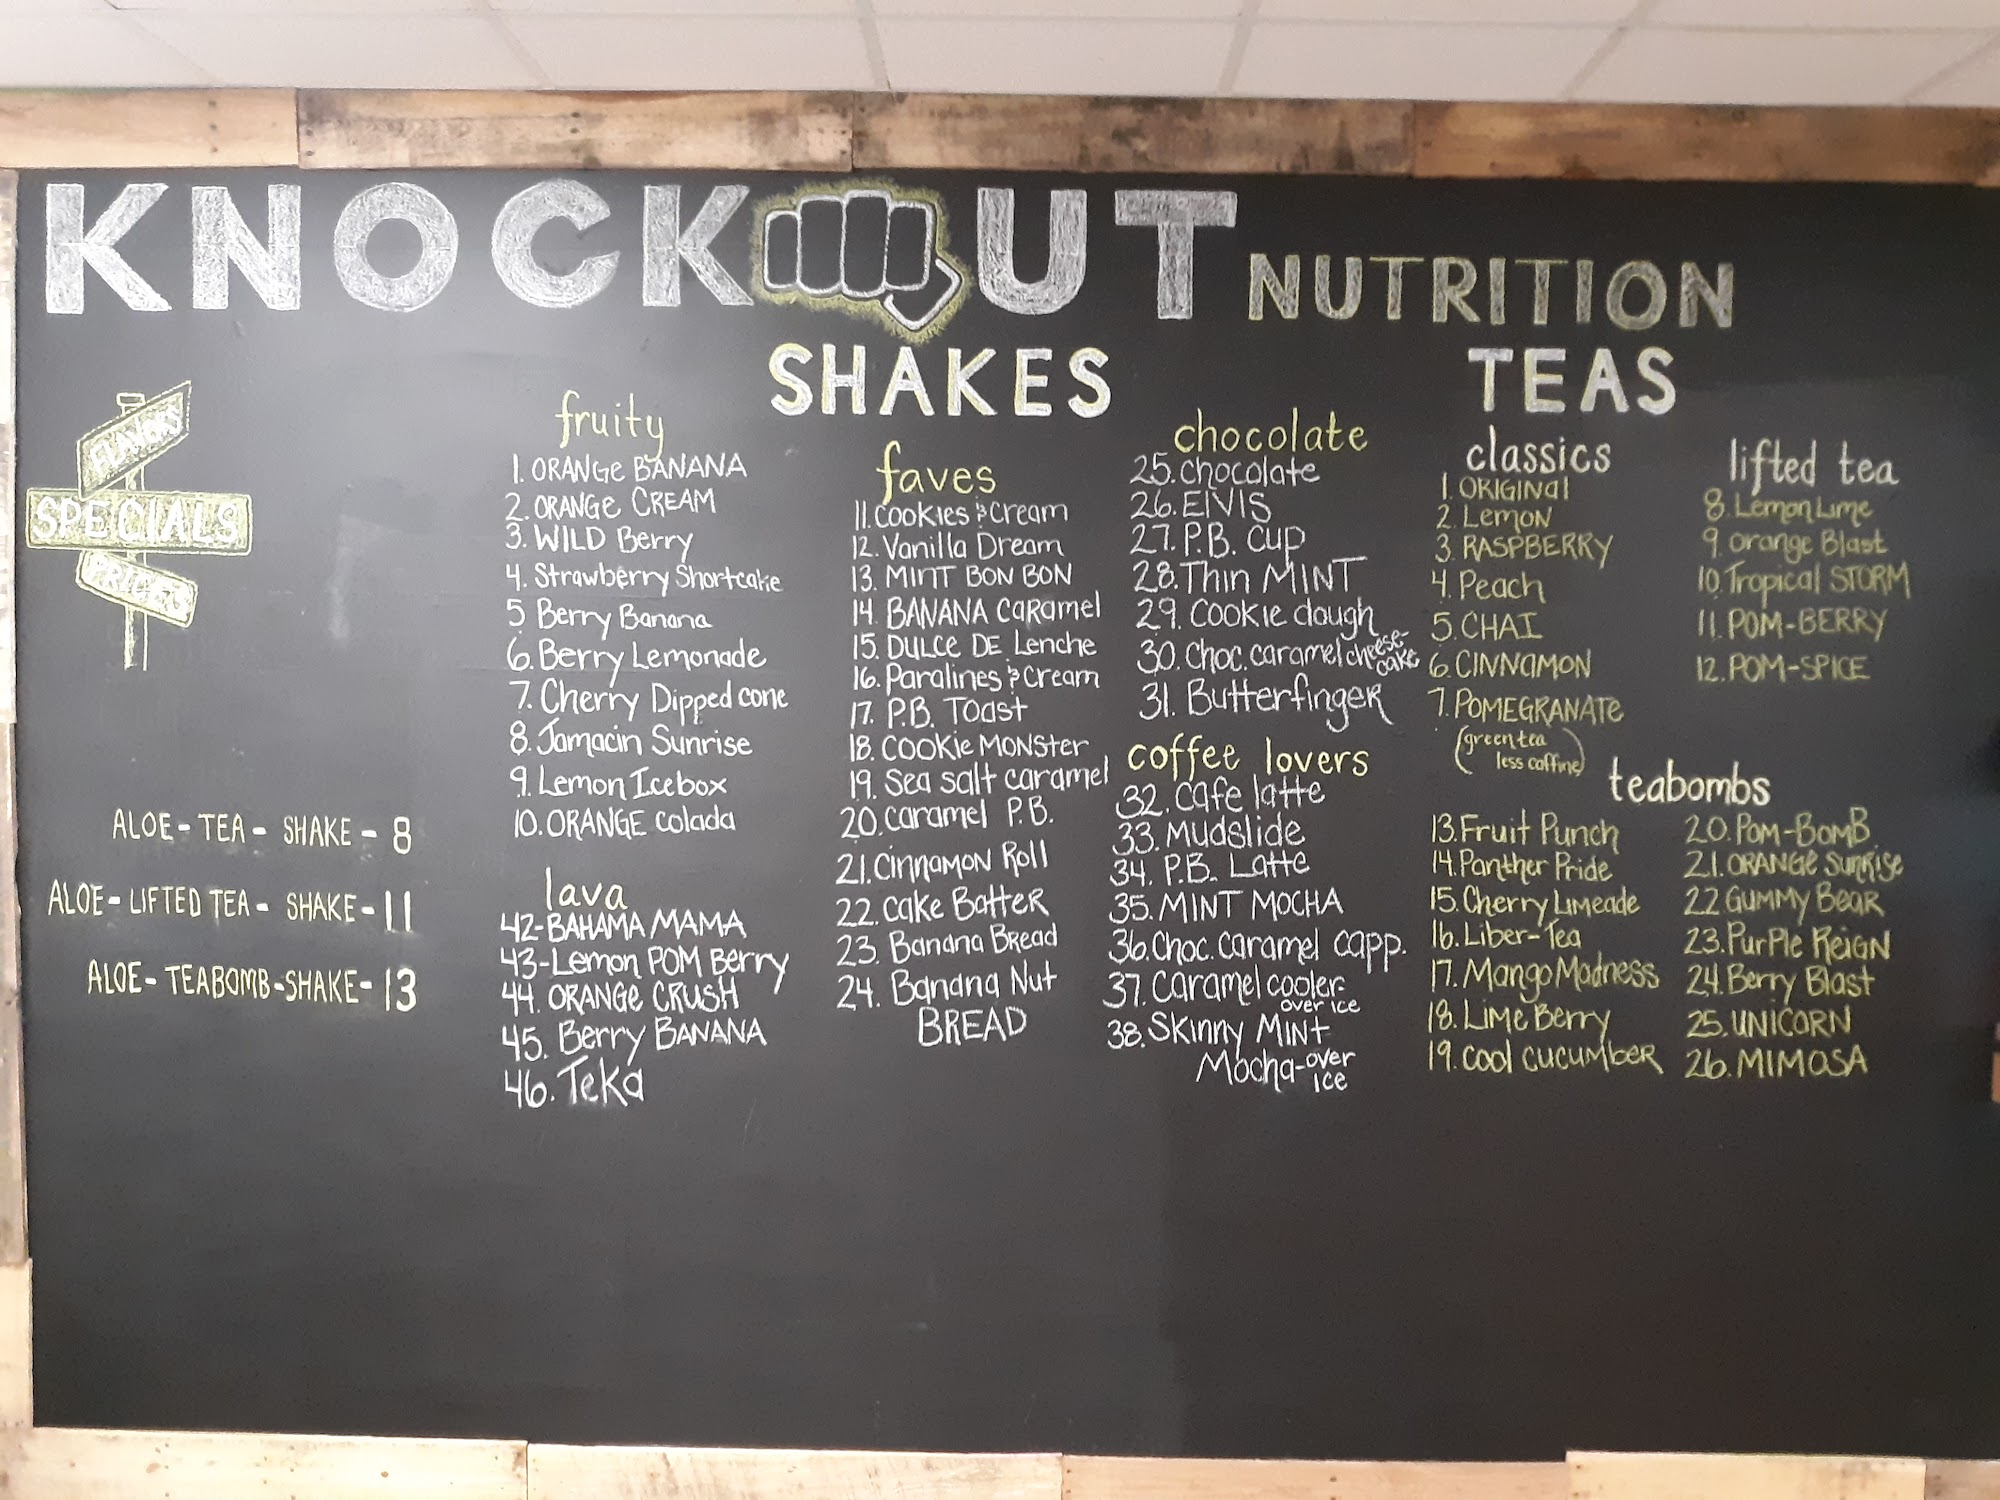 KNOCK UT NUTRITION
SHAKES
TEAS
FLAVORS
SPECIALS
PRICES
ALOE- TEA - SHAKE - 8
ALOE- LIFTED TEA - SHAKE - 11
ALOE- TEABOMB-SHAKE- 13
fruity
1. ORANGE BANANA
2. ORANGE CREAM
3. WILD Berry
4. Strawberry Shortcake
5 Berry Banana
6. Berry Lemonade
7. Cherry Dipped cone
8. Jamacin Sunrise
9. Lemon Icebox
10. ORANGE colada
lava
42-BAHAMA MAMA
43-Lemon POM Berry
44. ORANGE CRUSH
45. Berry BANANA
46. Teka
faves
11. COOKIES & Cream
12. Vanilla Dream
13. MINT BON BON
14. BANANA CaRamel
15. DULCE DE Lenche
16. Paralines & Cream
17. P.B. Toast
18. COOKie MONSTER
19. Sea salt caramel
20. caramel P.B.
21. Cinnamon Roll
22. cake Batter
23. Banana Bread
24. Banana Nut
BREAD
chocolate
25. chocolate
26. ElVIS
27. P.B. Cup
28. Thin MINT
29. Cookie dough
30. Choc. caramel cheese-
cake
31. Butterfinger
coffee lovers
32. cafe latte
33. Mudslide
34. P.B. Latte
35. MINT MOCHA
36. Choc. caramel capp.
37. Caramel cooler
over ice
38. Skinny Mint
Mocha-over
ice
classics
1. ORIGINal
2. Lemon
3. RASPBERRY
4. Peach
5. CHAI
6. CINNAMON
7. POMEGRANATE
(green tea
less caffine)
lifted tea
8. Lemon Lime
9. orange Blast
10. Tropical STORM
11. POM-BERRY
12. POM-SPICE
teabombs
13. Fruit Punch
14. Panther Pride
15. Cherry Limeade
16. Liber-Tea
17. Mango Madness
18. Lime Berry
19. cool cucumber
20. POM-BomB
21. ORANGE Sunrise
22 GUMMY BeaR
23. PurPle ReiGN
24. Berry Blast
25. UNICORN
26. MIMOSA